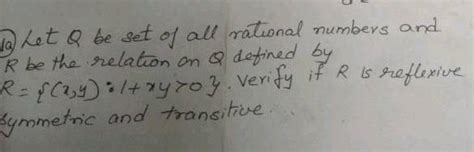 1a) Let Q be set of all rational numbers and
R be the relation on Q defined by
R = {(x,y) : 1+xy>0}. Verify if R is reflexive
symmetric and transitive.